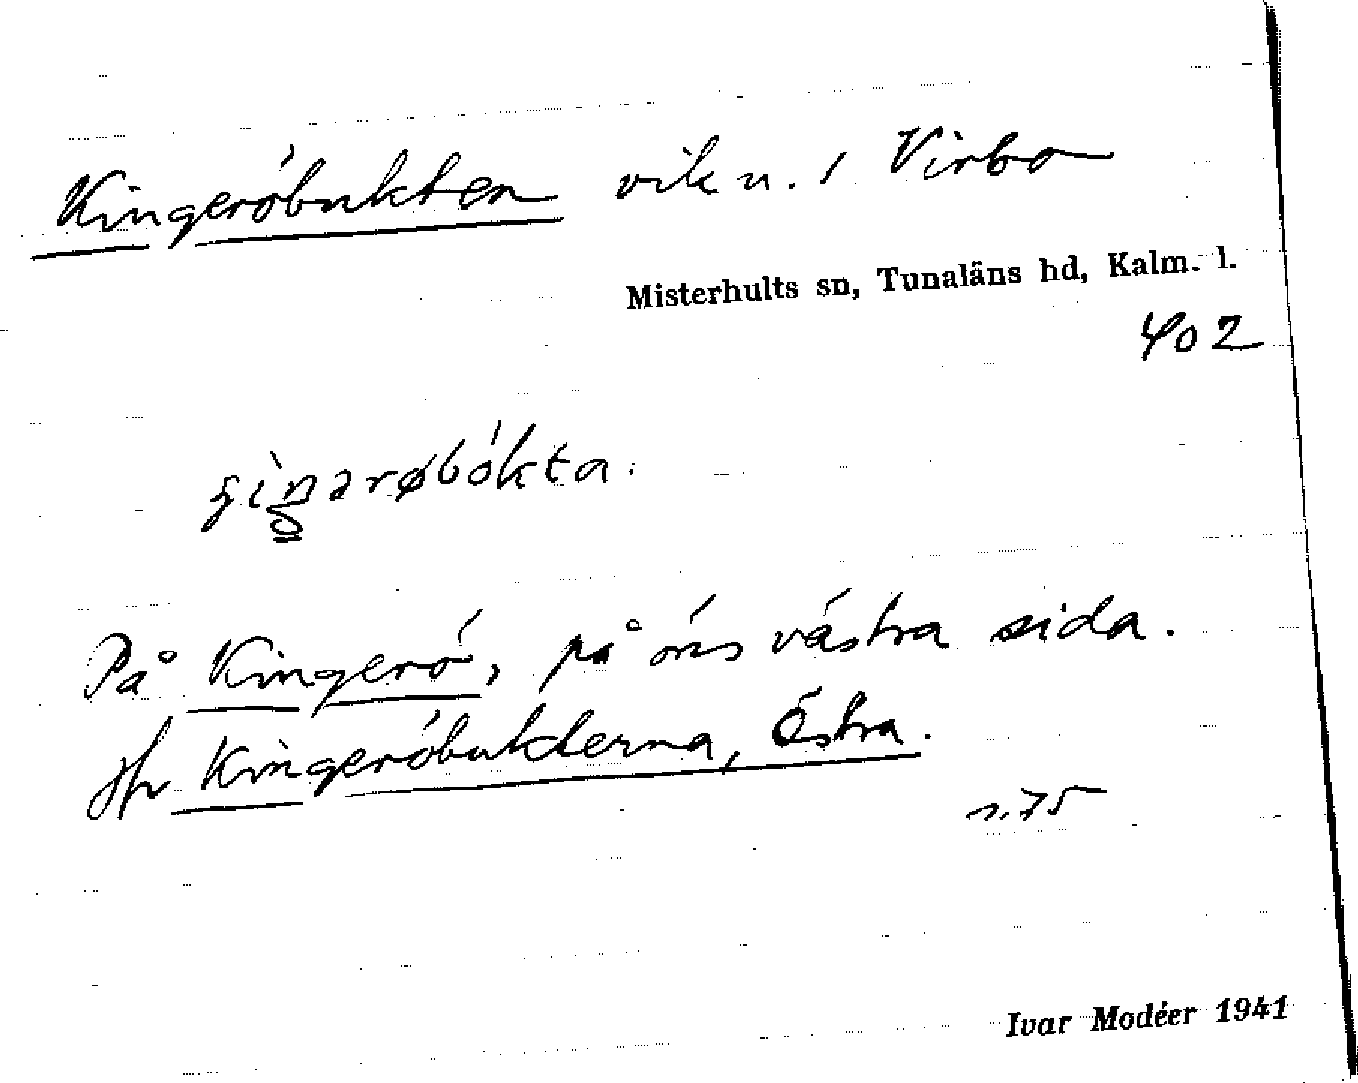 Kingeröbukten vik u. / Virbo
Misterhults sn, Tunaläns hd, Kalm. l.
402
På Kingerö, på öns västra sida.
Jfr Kingeröbukterna, Östra.
s. 75
Ivar Modéer 1941